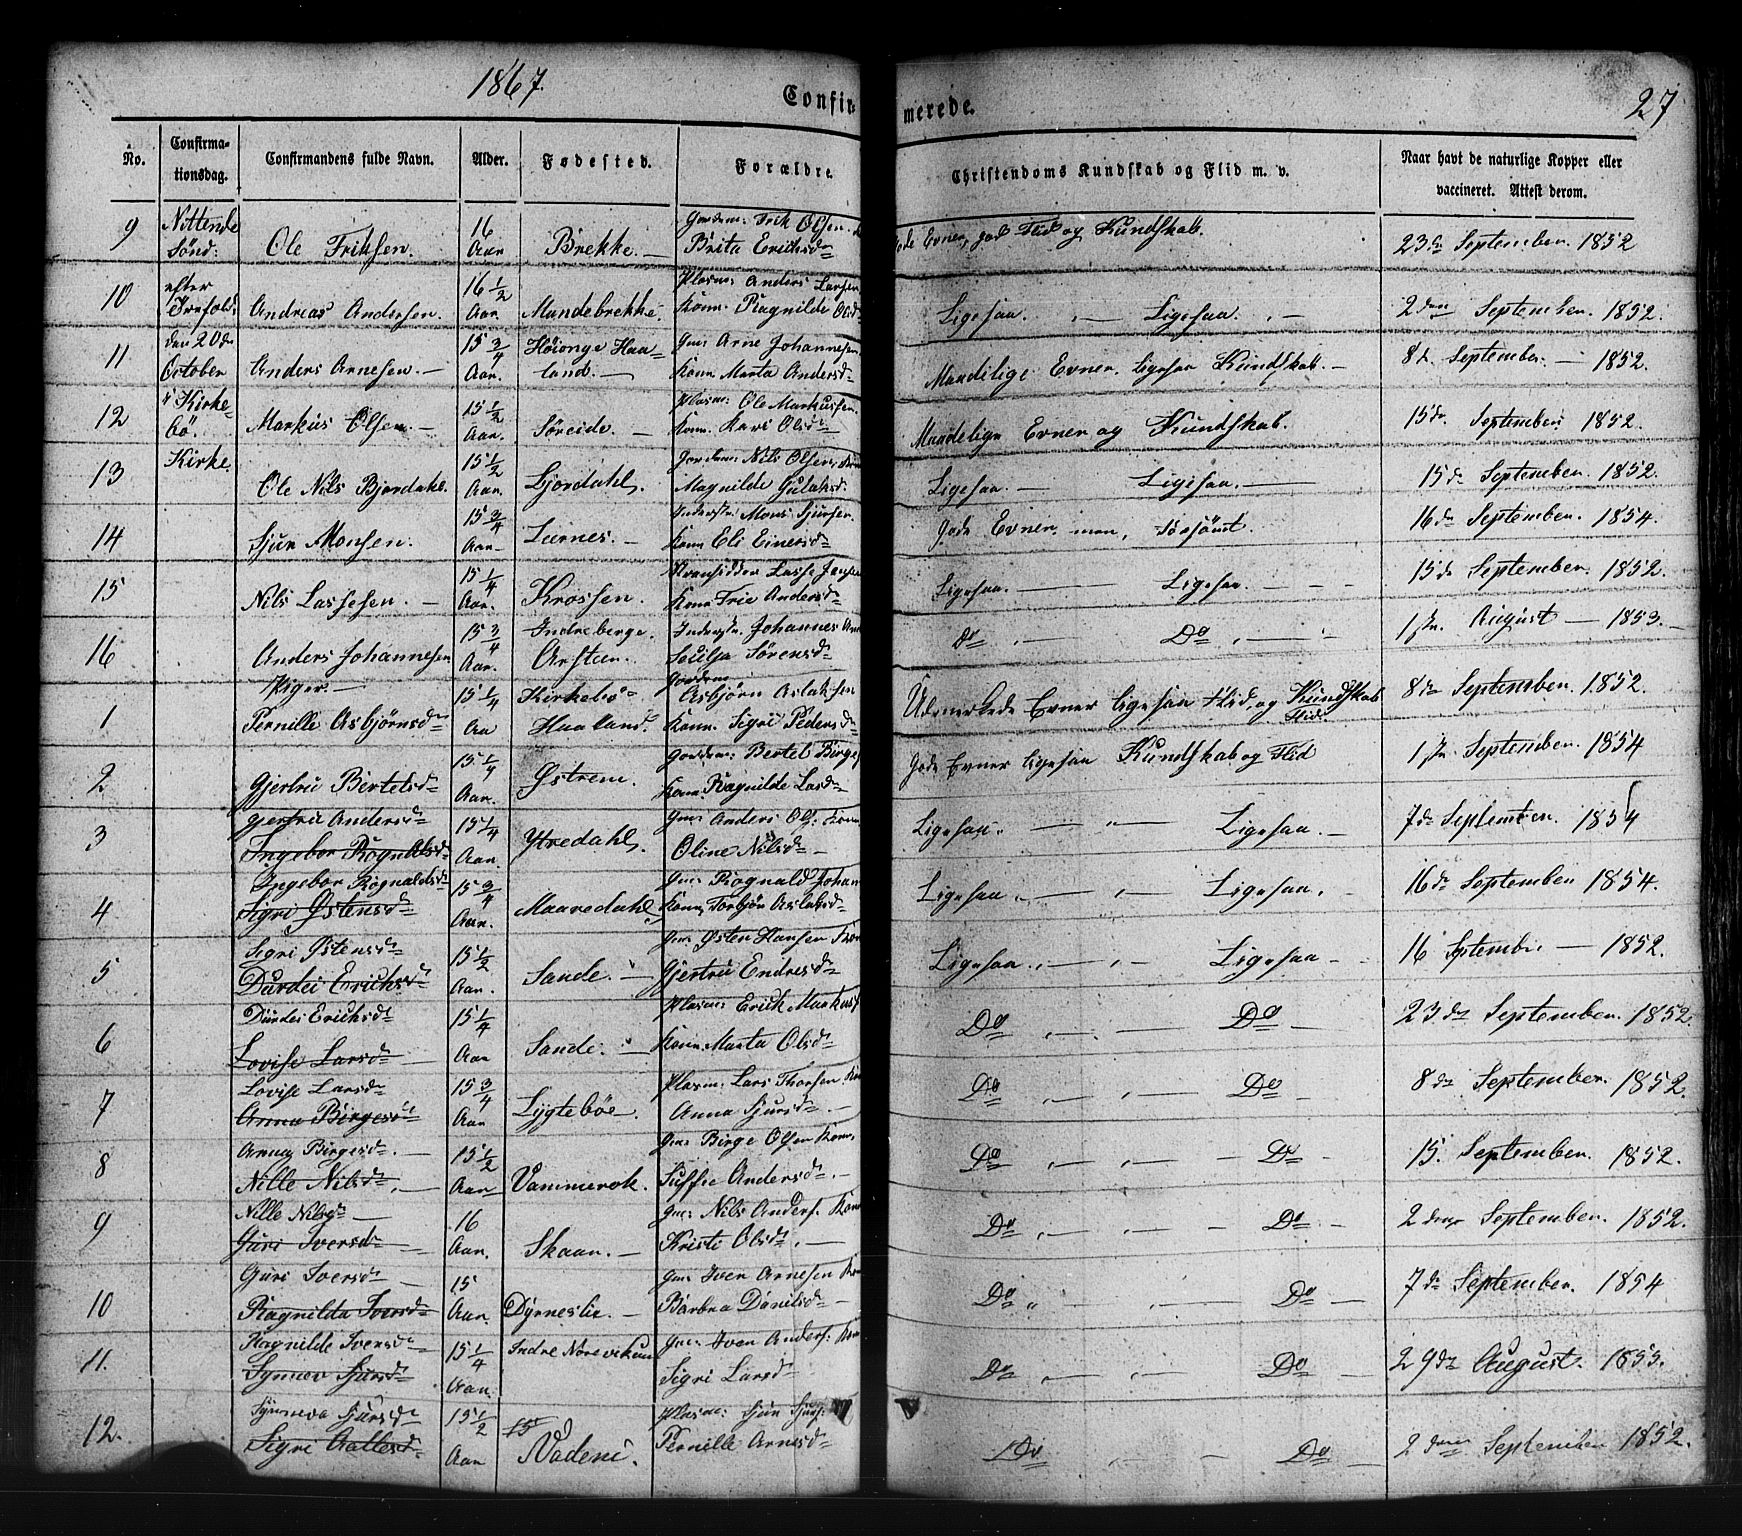 1867.
Confir-
merede.
27
No.
Confirma-
tionsdag.
Confirmandens fulde Navn.
Alder.
Fødested.
Forældre.
Christendoms Kundskab og Flid m. v.
Naar havt de naturlige Kopper eller
vaccineret. Attest derom.
9 Nittende Sønd: Ole Friksen. 16 Aar Brekke. — Gardm: Frik Olsen Brita Ericksdr Evner, god Flid og Kundskab. 23de September. 1852
10 efter Andreas Andersen. 16 1/2 Aar. Mandebrekke. Plasm: Anders Larsen Kone Ragnilde Olsdr Ligesaa. — Ligesaa. — 2den September. 1852.
11 den 20de October Anders Arnesen. — 15 3/4 Aar. Høionge Haa= land. — Gm: Arne Johannesen Kone Marta Andersdr Maadelige Evner, ligesaa Kundskab. — 8de September. — 1852.
12 i Kirke= bø. Markus Olsen. — 15 1/2 Aar. Søreide. — Plasm: Ole Markussen. Kone. Kari Olsdr Maadelige Evner og Kundskab. 15de September 1852.
13 Kirke. Ole Nils Bjordahl. 15 1/2 Aar. Bjordahl. Gardm: Nils Olsen, Kone Magnilde Gulaksdr Ligesaa. — Ligesaa. — 15de September. 1852.
14 Sjur Monsen. 15 3/4 Aar. — Mons Sjursen. Kone Eli Einersdr Gode Evner, men, forsømt. 16de September. 1854.
15 Nils Lassesen. — 15 1/4 Aar. Krossen. Lasse Jensen Kone Andersdr Ligesaa. — Ligesaa. — 15de September. 1852.
16 Anders Johannesen 15 3/4 Aar. Indreberge. Johannes Sørensdr Do — Do — August — 1853. —
Piger. —
1 Pernille Asbjørnsdr 15 1/4 Aar Kirkebø Haaland. Gardm Asbjørn Aslaksen Kone. Sigri Pedersdr Udmerkede Evner ligesaa Flid, og Kundskab Flid. 8de September. 1852.
2 Gjertru Bertelsdr 15 1/4 Aar. Østrem. Gardm: Bertel Birges Kone. Ragnilde Larsdr Gode Evner ligesaa Kundskab og Flid September. 1854
3 Gjertru Andersdr Ingebor Rognaldsdr 15 1/4 Aar. Ytredahl. Gm: Anders Ols: Kone Oline Nilsdr — Ligesaa. — Ligesaa. — 7de September. 1854
4 Ingebor Rognaldsdr Sigri Østensdr 15 3/4 Aar. Maaredahl. Gm: Rognald Johan Kone Torbjør Aslaksdr Ligesaa — Ligesaa. 16de September 1854.
5 Sigri Østensdr Durdei Ericksdr 15 1/2 Aar. Sande. — Gm: Østen Hansen Kone Gjertru Endresdr Ligesaa. — Ligesaa — 16 September — 1852.
6 Durdei Ericksdr Lovise Larsdr 15 1/4 Aar Sande. — Plasm: Erick Markus Kone. Marta Olsdr Do — Do — 23de September. 1852.
7 Lovise Larsdr Anna Birgesdr 15 3/4 Aar Lygtebøe. Plasm: Lars Thorsen Anna Sjursdr — Do — Do 8de September. 1852.
8 Anna Birgesdr. — Nille Nilsdr. — 15 1/2 Aar Vammerok. Gm: Birge Olsen Kone Suffie Andersdr — Do — Do — 15. September. 1852.
9 Nille Nilsdr — Guri Iversdr — 16 Aar. Skaan. — Gm: Nils Anders. Kone Kristi Olsdr. — Do — Do — 2den September. 1852.
10 Guri Iversdr — Ragnilda Iversdr 15 Aar. Dyrneslie — Gm: Iver Arnesen Kone Barbra Danilsdr — Do — Do — 7de September. 1854
11. Ragnilde Iversdr Synnev Sjursdr 15 1/4 Aar. Indre Norevikum Gm: Iver Anders: Kone Sigri Larsdr Do — Do — 29de August. 1853.
12. Synneva Sjursdr Sigri Aallesdr 15 1/2 Aar 15 Vadeni. Plasm: Sjur Sjurs: Pernille Arnesdr Do — Do — 2den September 1852.